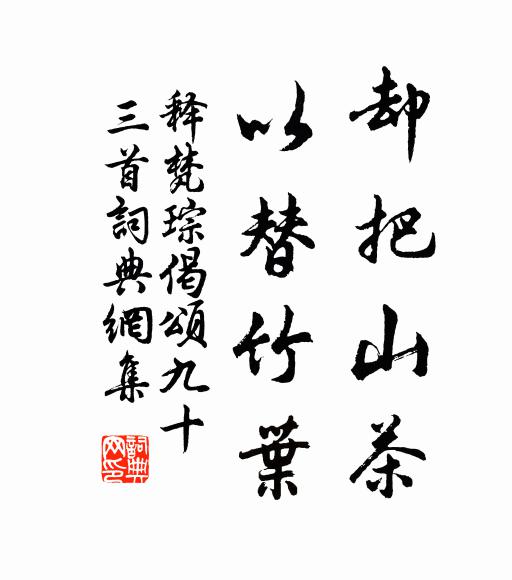 却把山茶
以替竹葉
释梵琮偈頌九十
三首詞典網集
詞典
网印